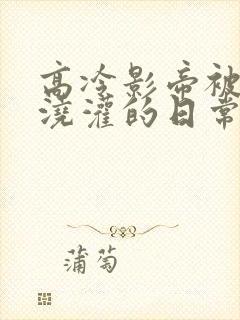 高冷影帝被
浇灌的日常
蒲萄